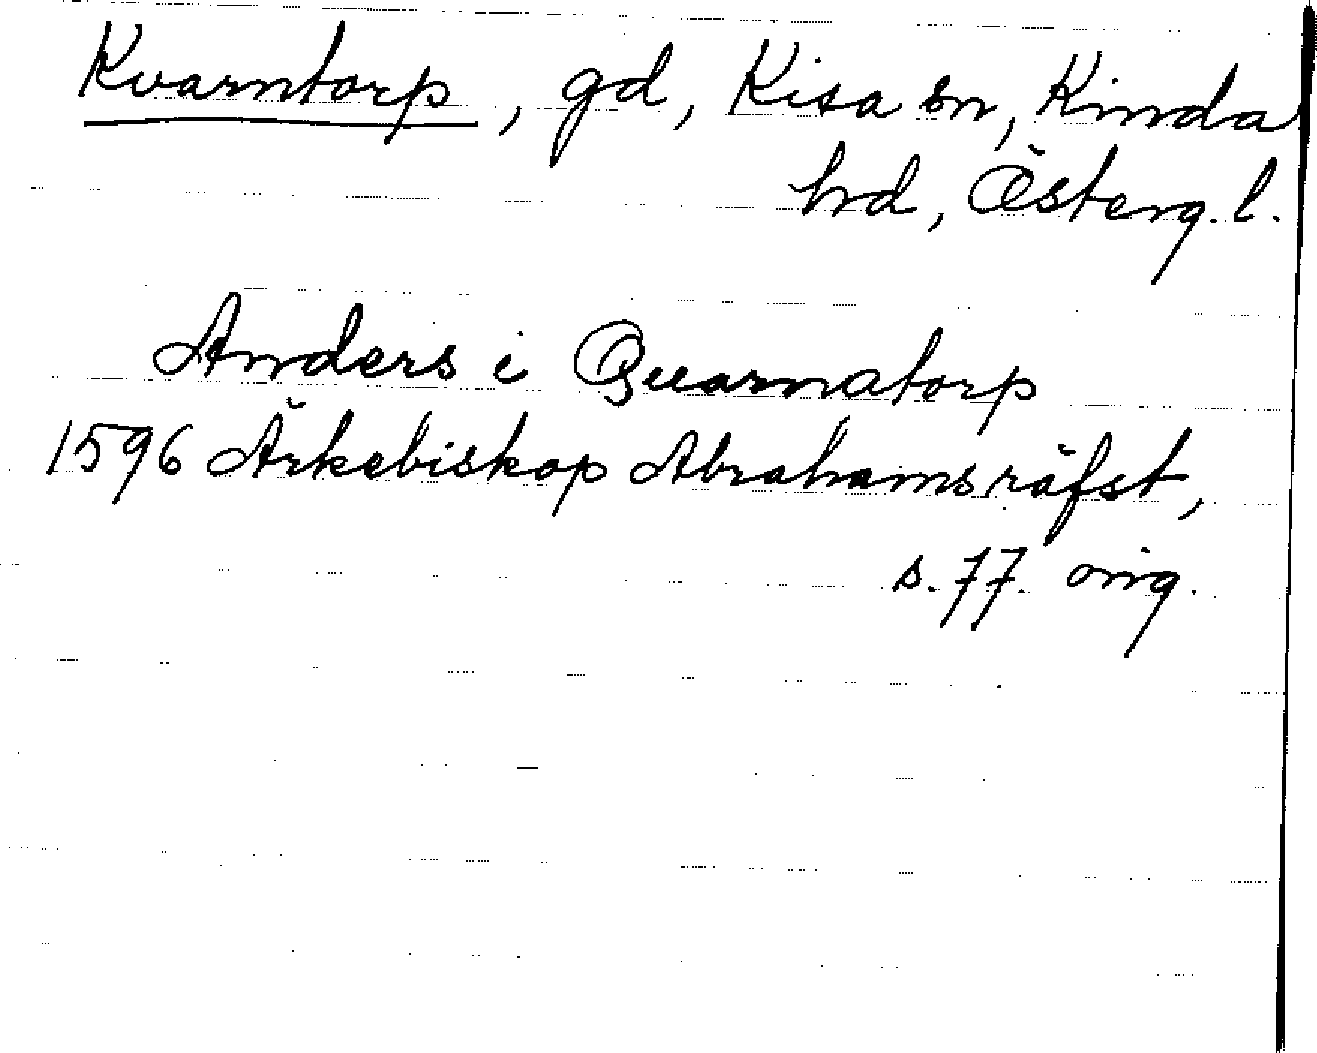 Kvarntorp, gd, Kisa sn, Kinda
hrd, Österg. l.
Anders i Quarnatorp
1596 Ärkebiskop Abrahams räfst,
s. 77. orig.